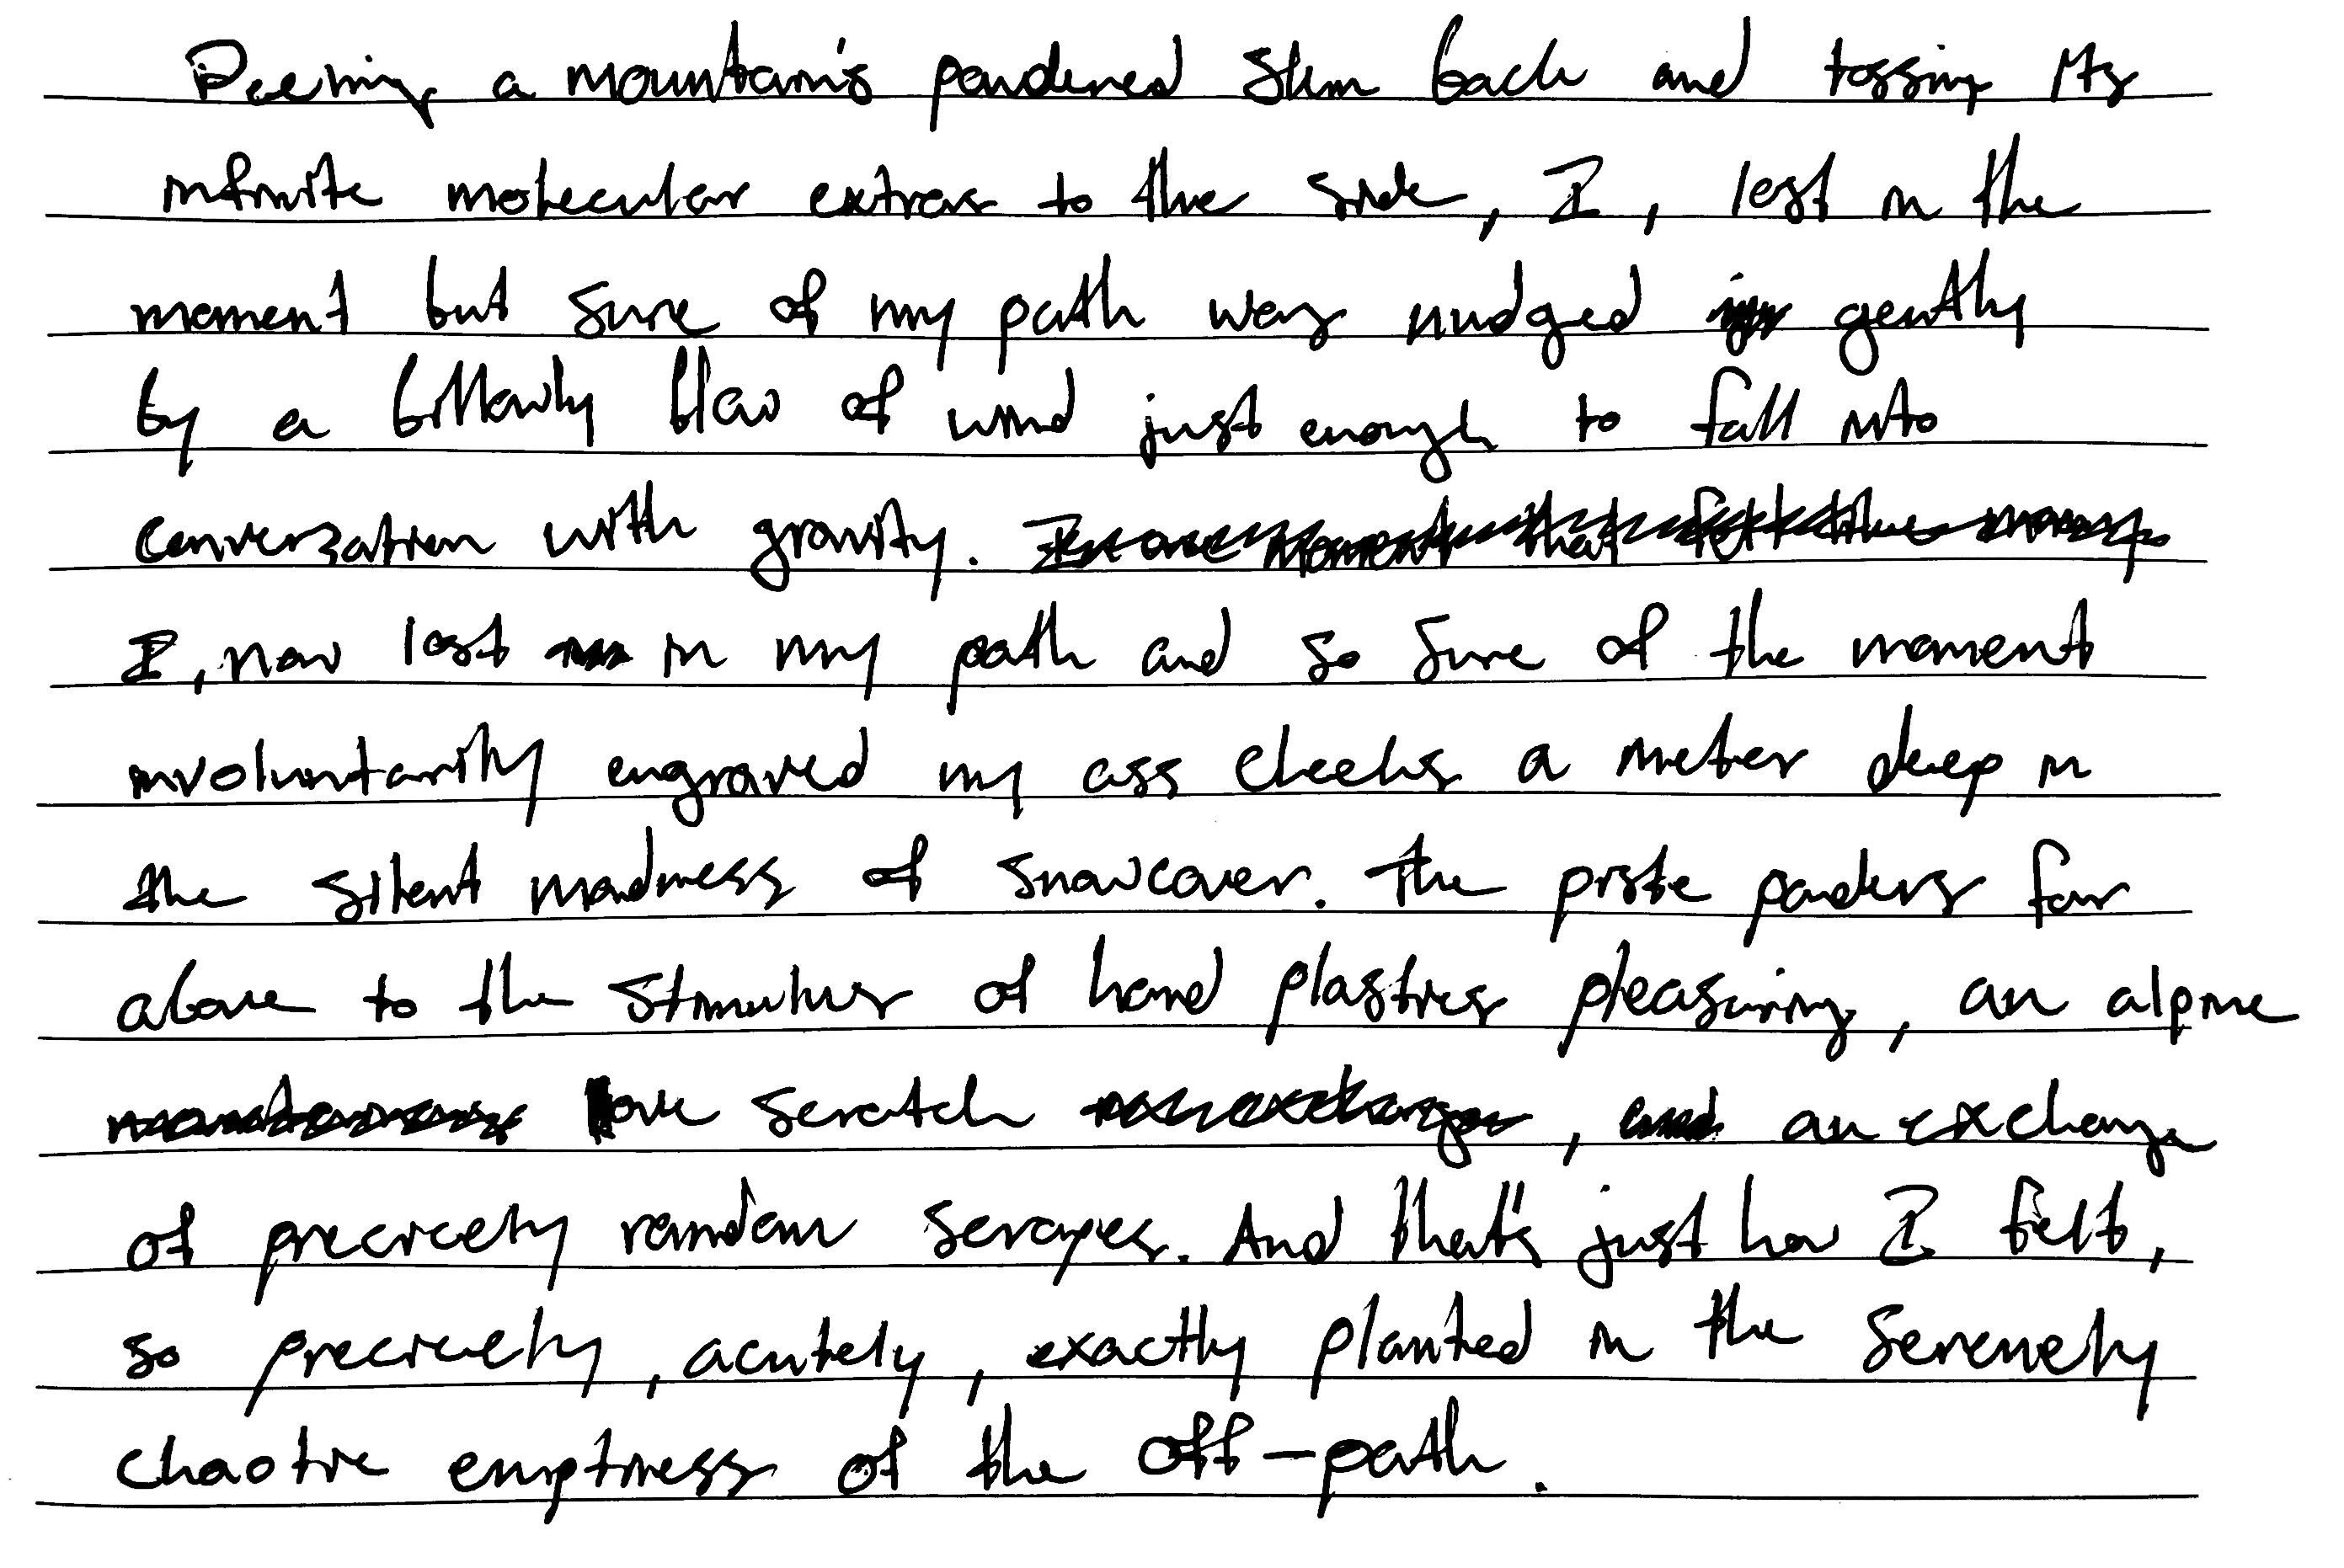 Peeling a mountain's powdered skin back and tossing its
infinite molecular extras to the side, I, lost in the
moment but sure of my path was nudged gently
by a billowly blow of wind just enough to fall into
converzation with gravity.
I, now lost in my path and so sure of the moment
involuntarily engraved my ass cheeks a meter deep in
the silent madness of snowcover. The piste panders far
above to the stimulus of hard plastics pleasuring, an alpine
love scratch, an exchange
of precicely random scrapes. And that's just how I felt,
so precicely, acutely, exactly planted in the serenely
chaotic emptiness of the off-path.